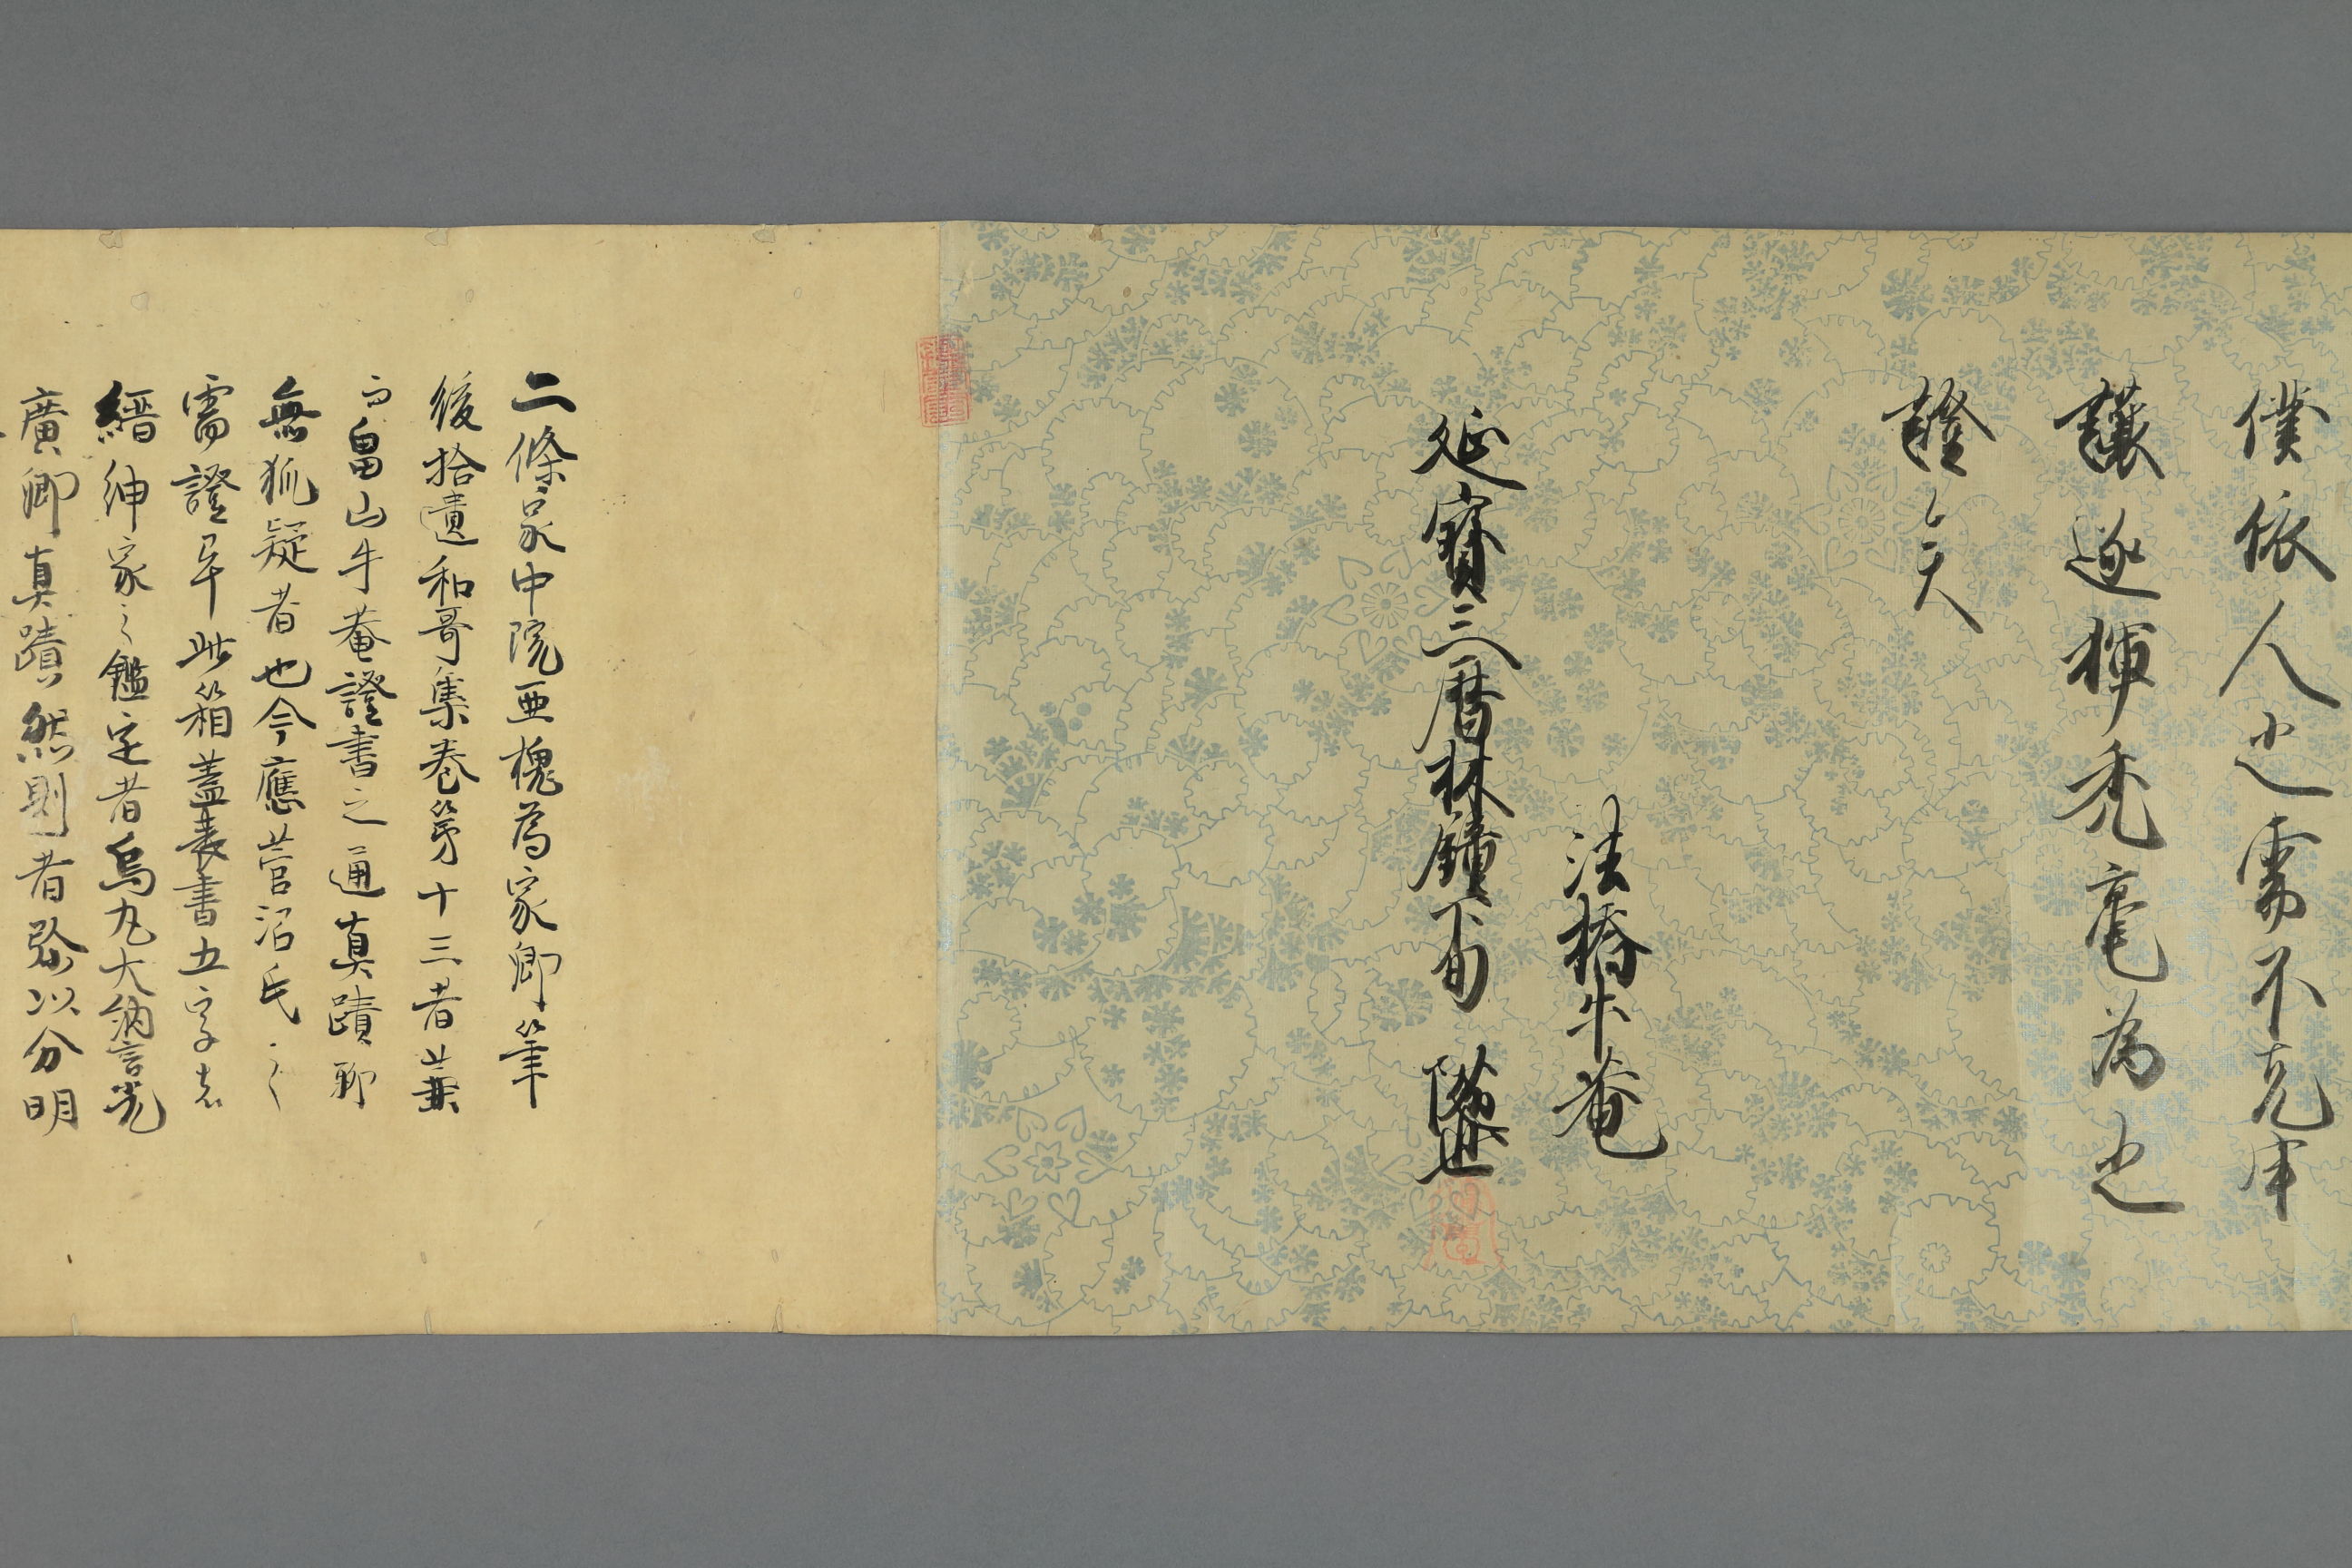 僕依人之需不克牢
讓遂揮禿毫為之
證云矣
法橋牛菴
延寶三暦林鐘下旬
二條家中院亜槐為家卿筆
後拾遺和哥集巻第十三者兼
而畠山牛菴證書之通真蹟聊
無狐疑者也今應菅沼氏之
需證早此箱蓋裏書五字者
縉紳家之鑑定者烏丸大納言光
廣卿真蹟然則者弥以分明